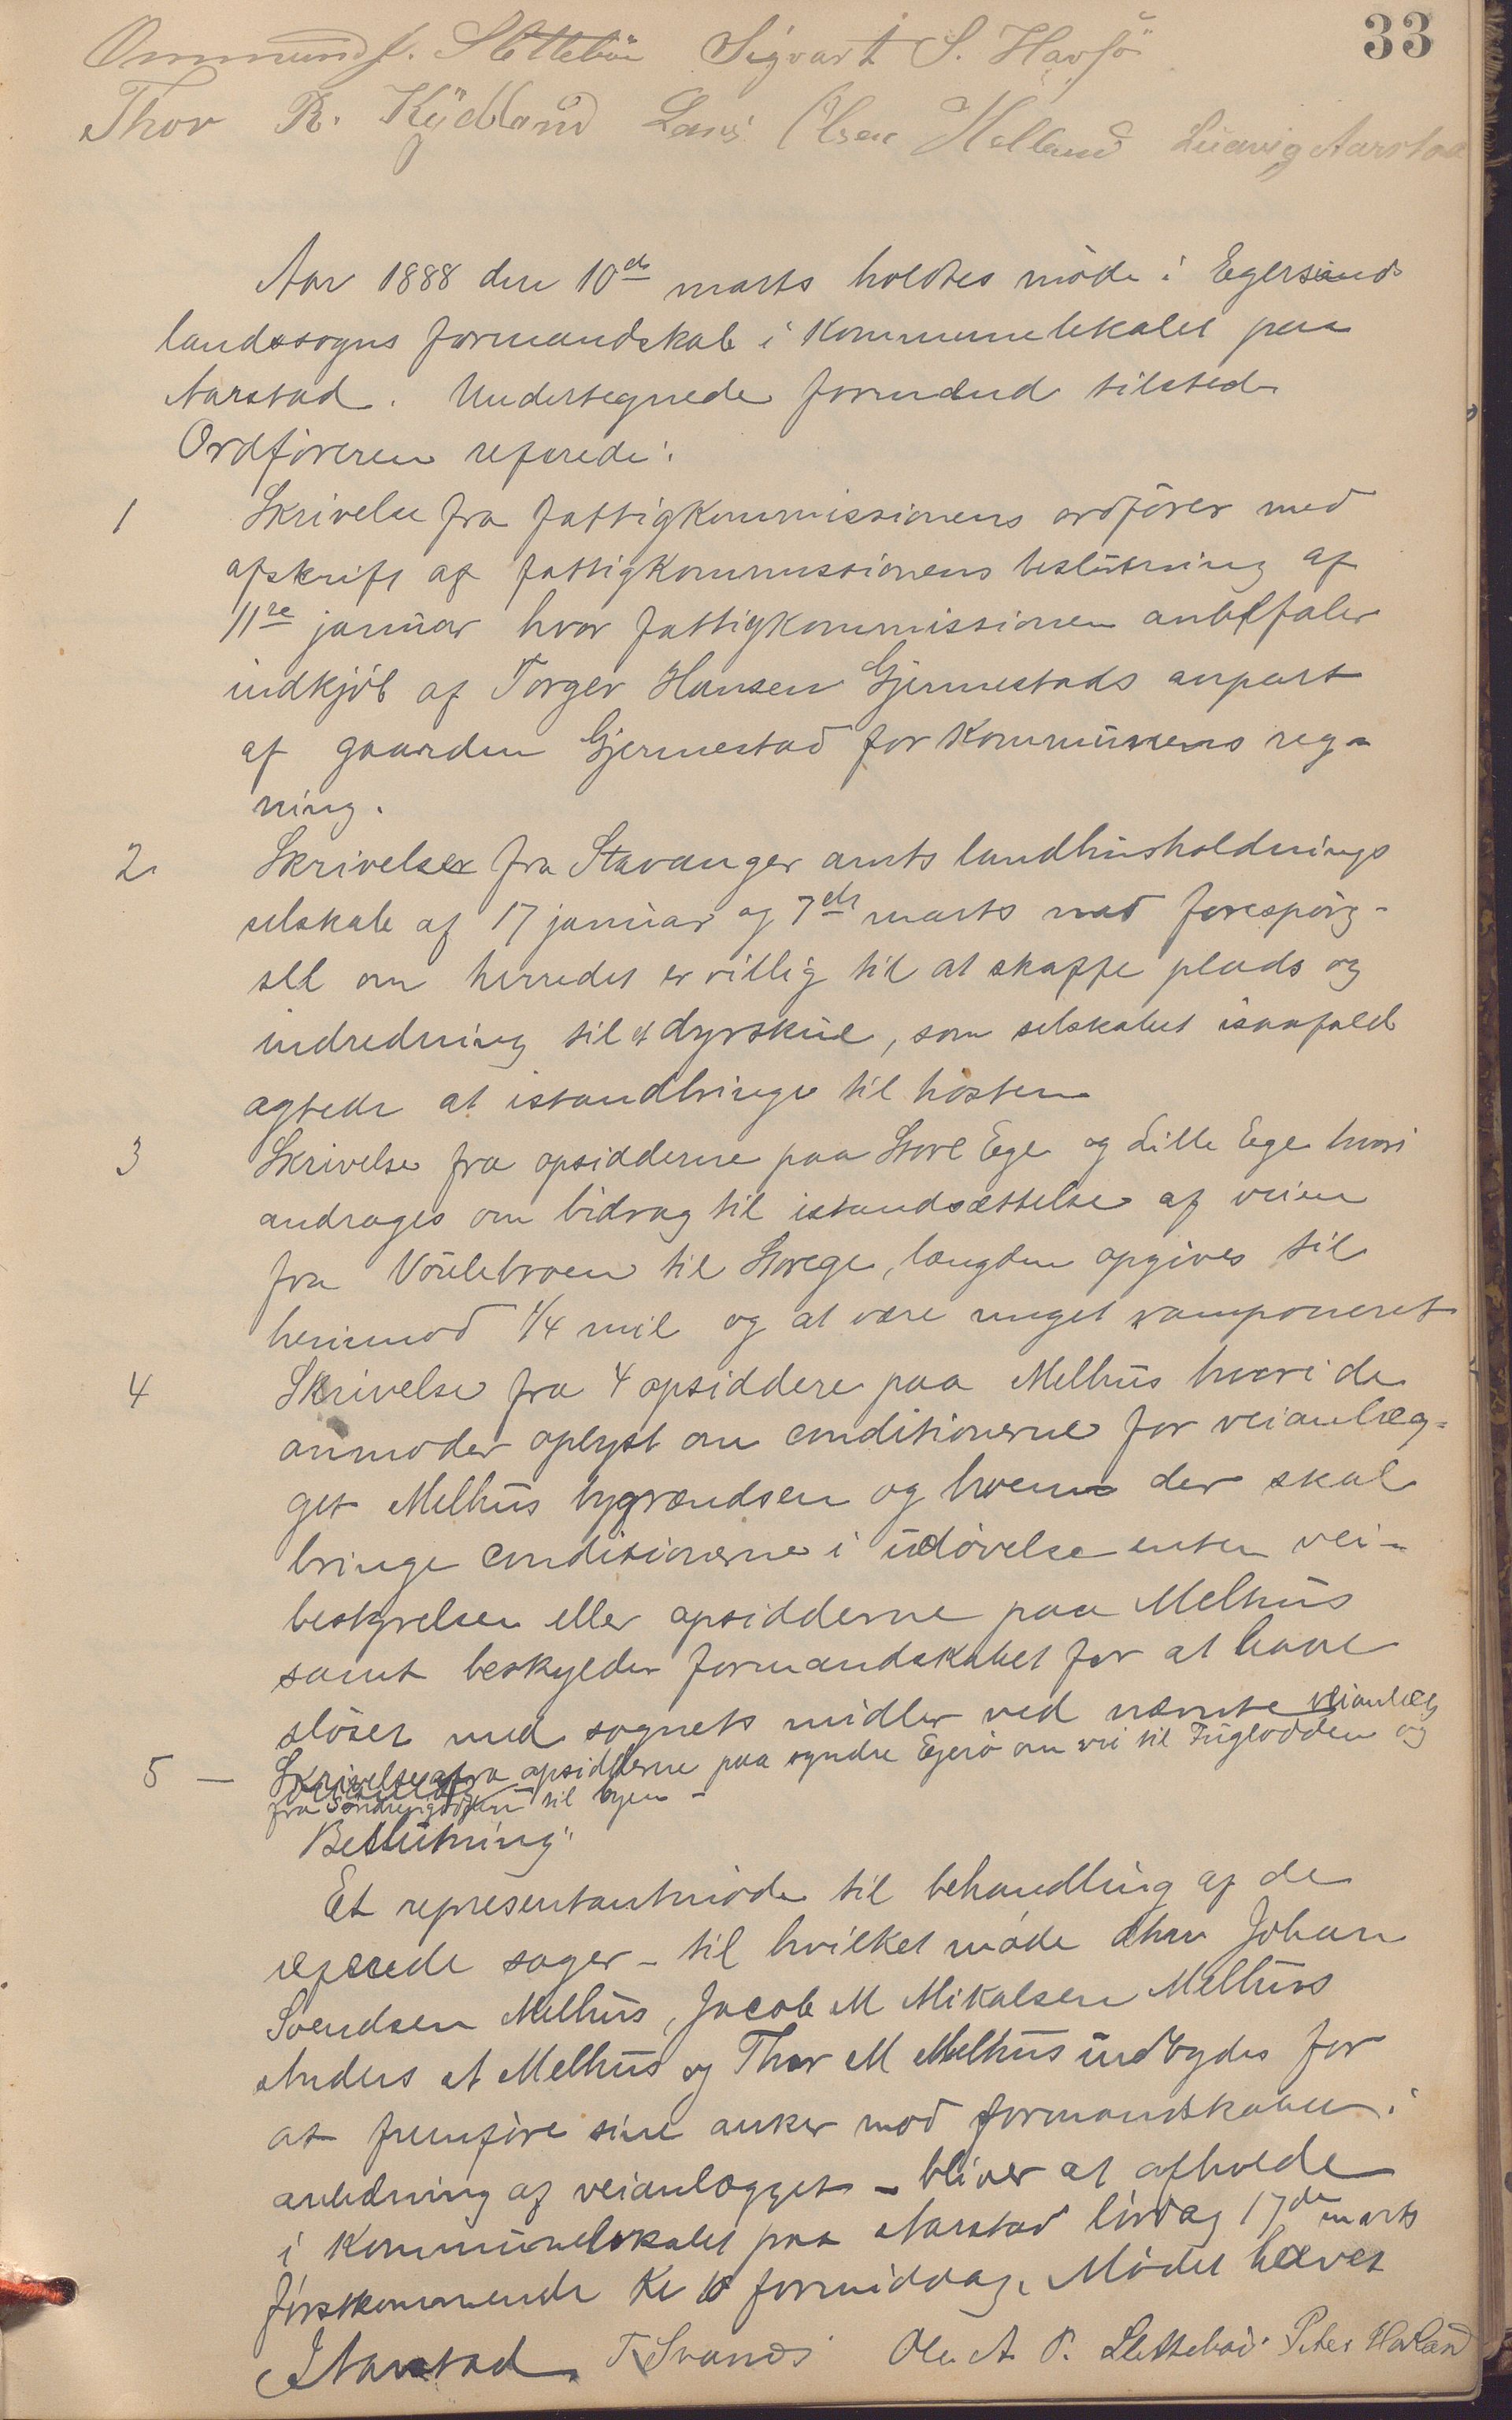 33
Ommund J. Sletteböe Sigvart S. Havsö
Thor R. Kydland Lars Olsen Helland Ludvig Aarstad
Aar 1888 den 10de marts holdtes möde i Egersunds
landssogns formandskab i kommunelokalet paa
Aarstad. Undertegnede formænd tilstede
Ordföreren referede:
1 Skrivelse fra fattigkommissionens ordförer med
afskrift af fattigkommissionens beslutning af
11te januar hvor fattigkommissionen anbefaler
indkjöb af Torger Hansen Gjermestads anpart
af gaarden Gjermestad for kommunens reg-
ning.
2 Skrivelser fra Stavanger amts landhusholdnings
selskab af 17 januar og 7de marts med forespörg-
sel om herredet er villig til at skaffe plads og
indredning til et dyrskue, som selskabet isaafald
agtede at istandbringe til hösten
3 Skrivelse fra opsidderne paa Store Ege og Lille Ege hvori
andrages om bidrag til istandsættelse af veien
fra Vöulebroen til Storege, længden opgives til
henimod 1/4 mil og at være meget ramponeret
4 Skrivelse fra 4 opsiddere paa Melhus hvori de
anmoder oplyst om conditionerne for veianlæg-
get Melhus bygrændsen og hvem der skal
bringe conditionerne i udövelse enten vei-
bestyrelsen eller opsidderne paa Melhus
samt beskylder formandskabet for at have
slöset med sognets midler ved nævnte veianlæg
5 — Skrivelse fra opsidderne paa syndre Egerö om vei til Fuglodden og
fra til byen -
Beslutning:
Et representantmöde til behandling af de
referede sager - til hvilket möde Johan
Svendsen Melhus, Jacob M Mikalsen Melhus
Anders A Melhus og Thor M Melhus indbydes for
at fremföre sine anker mod formandskabet i
anledning af veianlægget - bliver at afholde
i kommunelokalet paa Aarstad lördag 17de marts
förstkommende Kl 10 formiddag. Mödet hævet
Aarstad T Svanes Ole A P. Slettebö Peter Havland